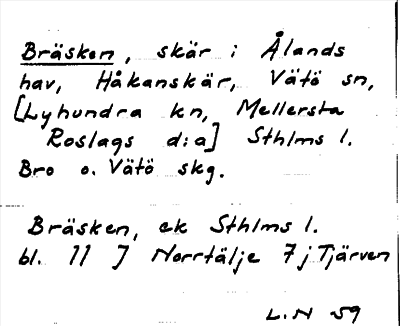 Bräsken, skär i Ålands
hav, Håkanskär, Vätö sn,
[Lyhundra kn, Mellersta
Roslags d:a] Sthlms l.
Bro o. Vätö skg.
Bräsken, ek Sthlms l.
bl. 11 J Norrtälje 7 j Tjärven
L.N 59